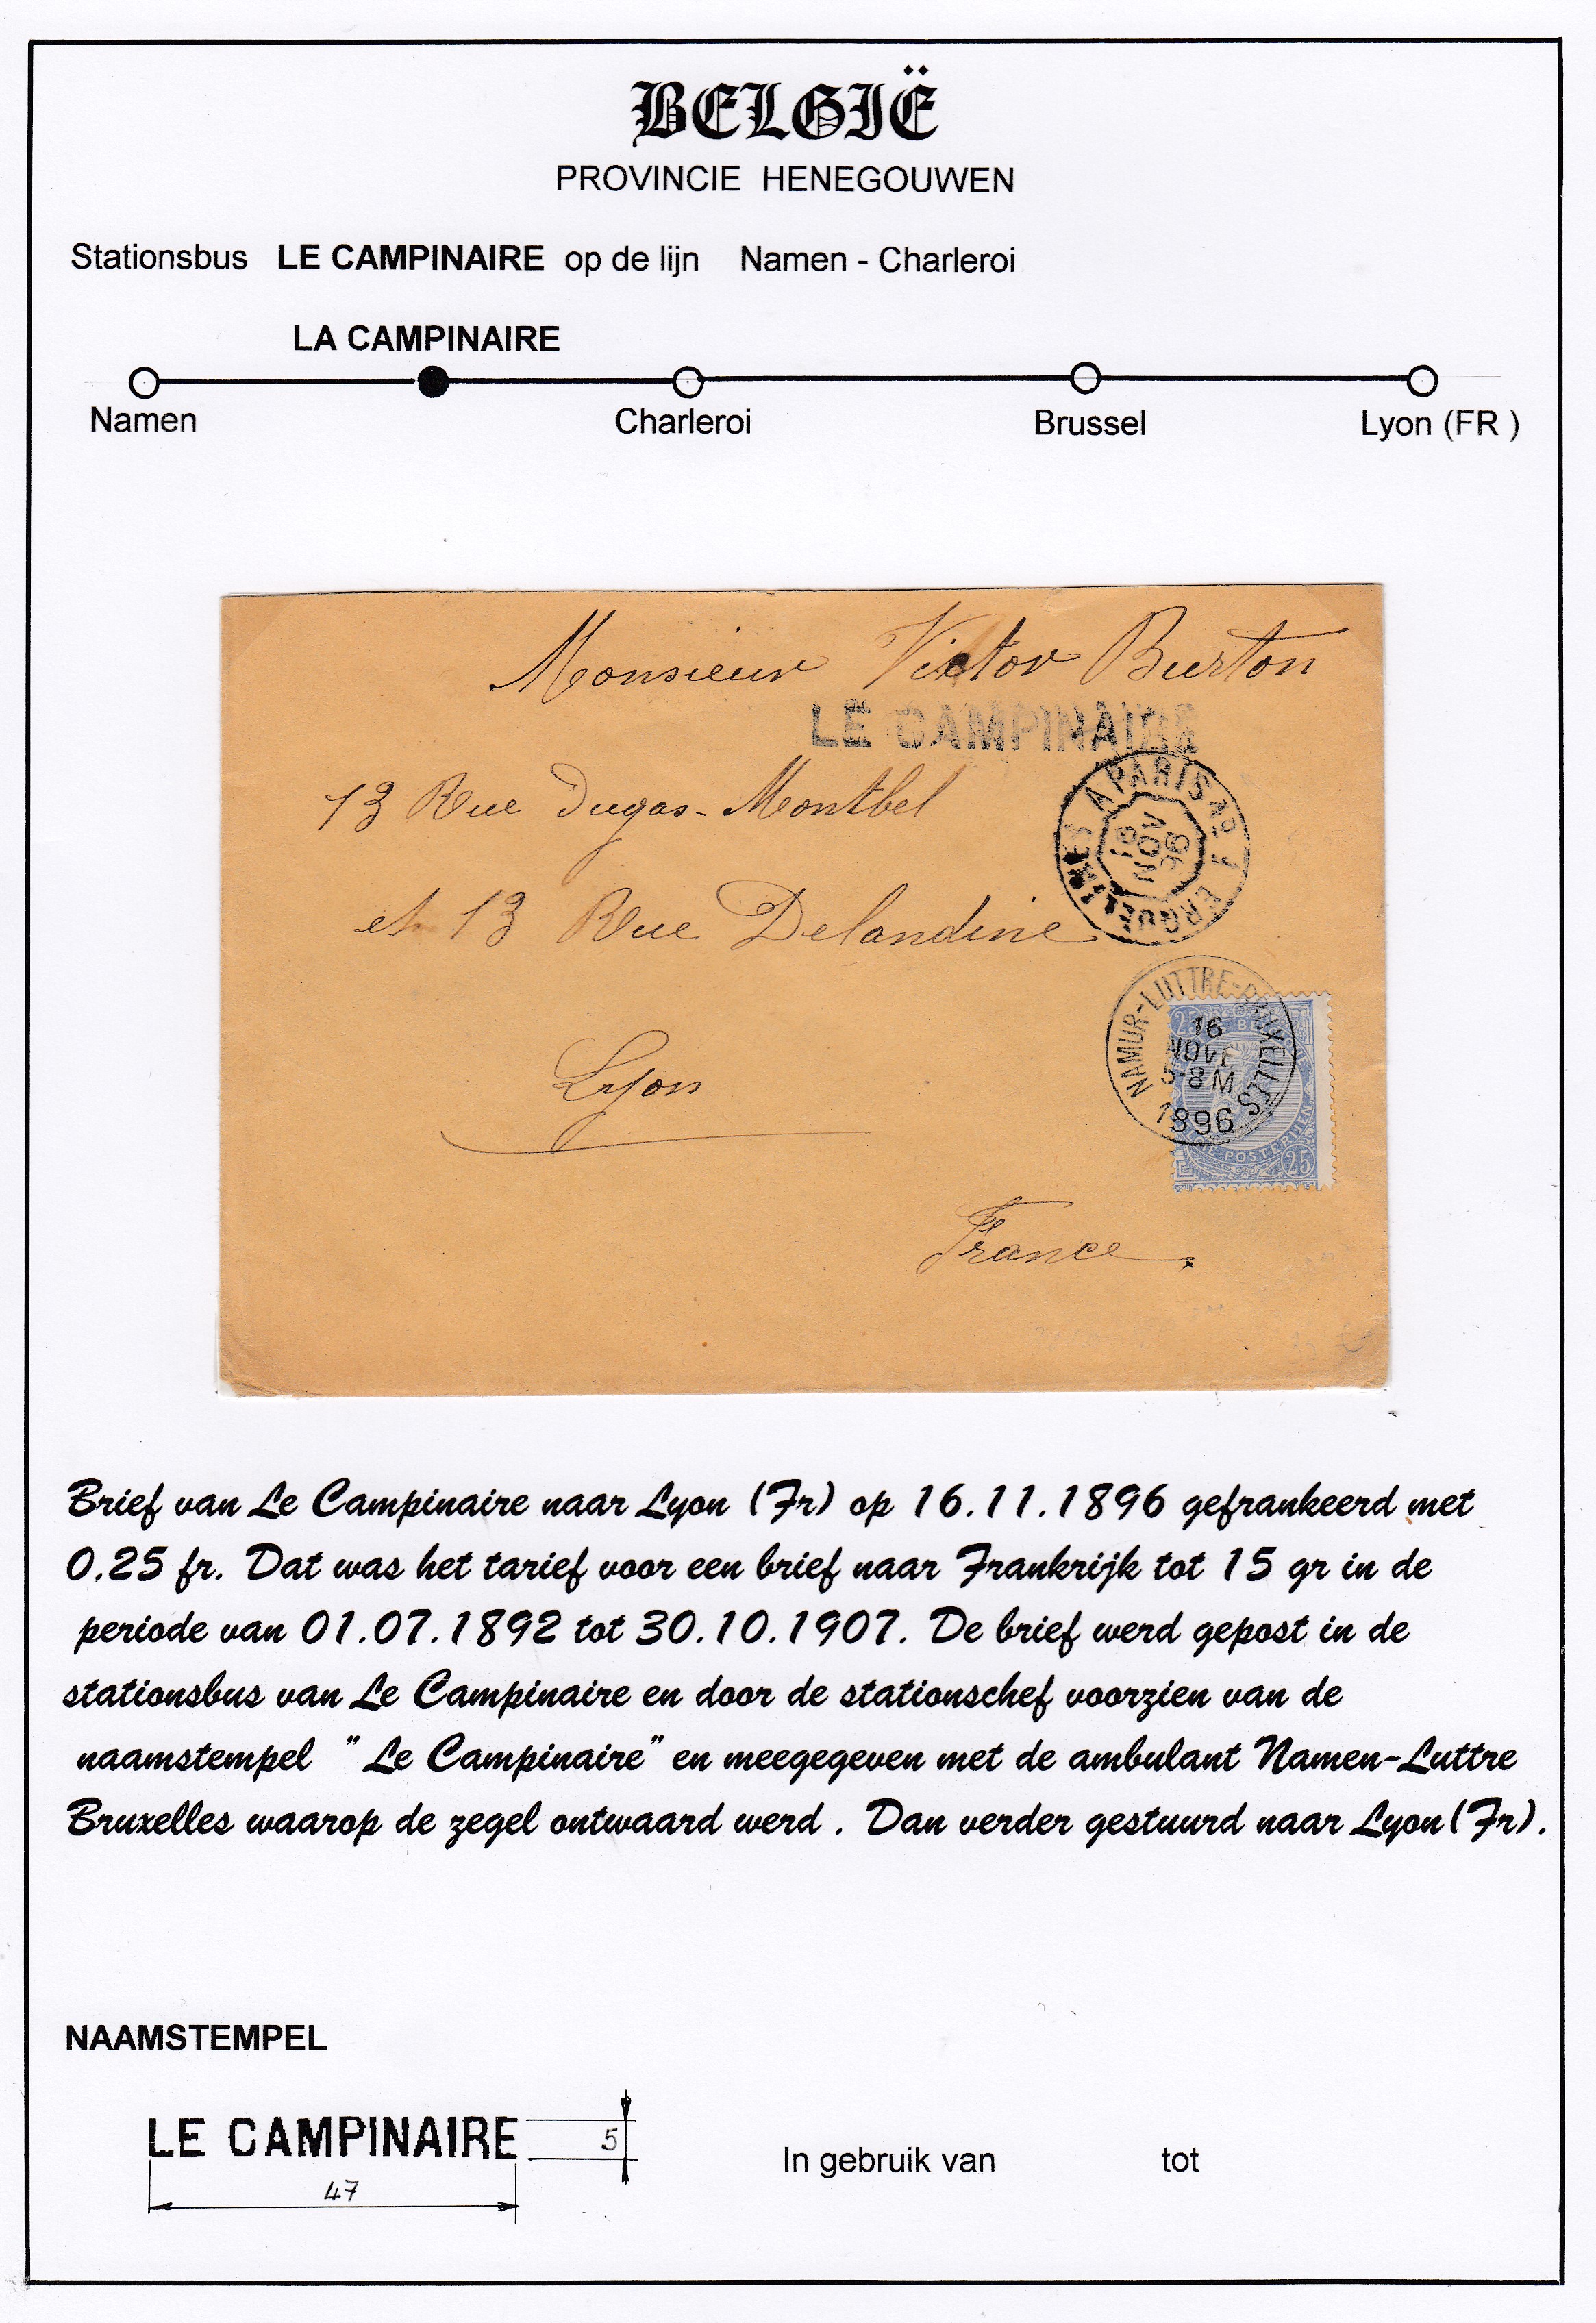 BELGIË
PROVINCIE HENEGOUWEN
Stationsbus LE CAMPINAIRE op de lijn Namen - Charleroi
LA CAMPINAIRE
Namen Charleroi Brussel Lyon (FR )
Monsieur Victor Burton
LE CAMPINAIRE
13 Rue Dugas-Montbel
et 13 Rue Delandine
Lyon
France
A PARIS
ERQUELINES
16
NOV
96
NAMUR-LUTTRE-BRUXELLES
16
NOVE
5-8 M
1896
25
POSTERIJEN
25
Brief van Le Campinaire naar Lyon (Fr) op 16.11.1896 gefrankeerd met
0.25 fr. Dat was het tarief voor een brief naar Frankrijk tot 15 gr in de
periode van 01.07.1892 tot 30.10.1907. De brief werd gepost in de
stationsbus van Le Campinaire en door de stationschef voorzien van de
naamstempel " Le Campinaire" en meegegeven met de ambulant Namen-Luttre
Bruxelles waarop de zegel ontwaard werd . Dan verder gestuurd naar Lyon(Fr).
NAAMSTEMPEL
LE CAMPINAIRE 5
47
In gebruik van tot